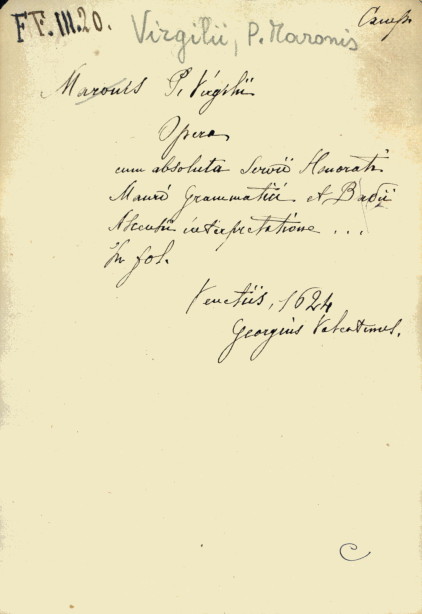 FF.III.20.
Virgilii, P. Maronis
Maronis P. Virgilii
Opera
cum absoluta Servii Honorati
Mauri Grammatici et Badii
Ascensii interpretatione ...
In fol.
Venetiis, 1624
Georgius Valentinus.
C